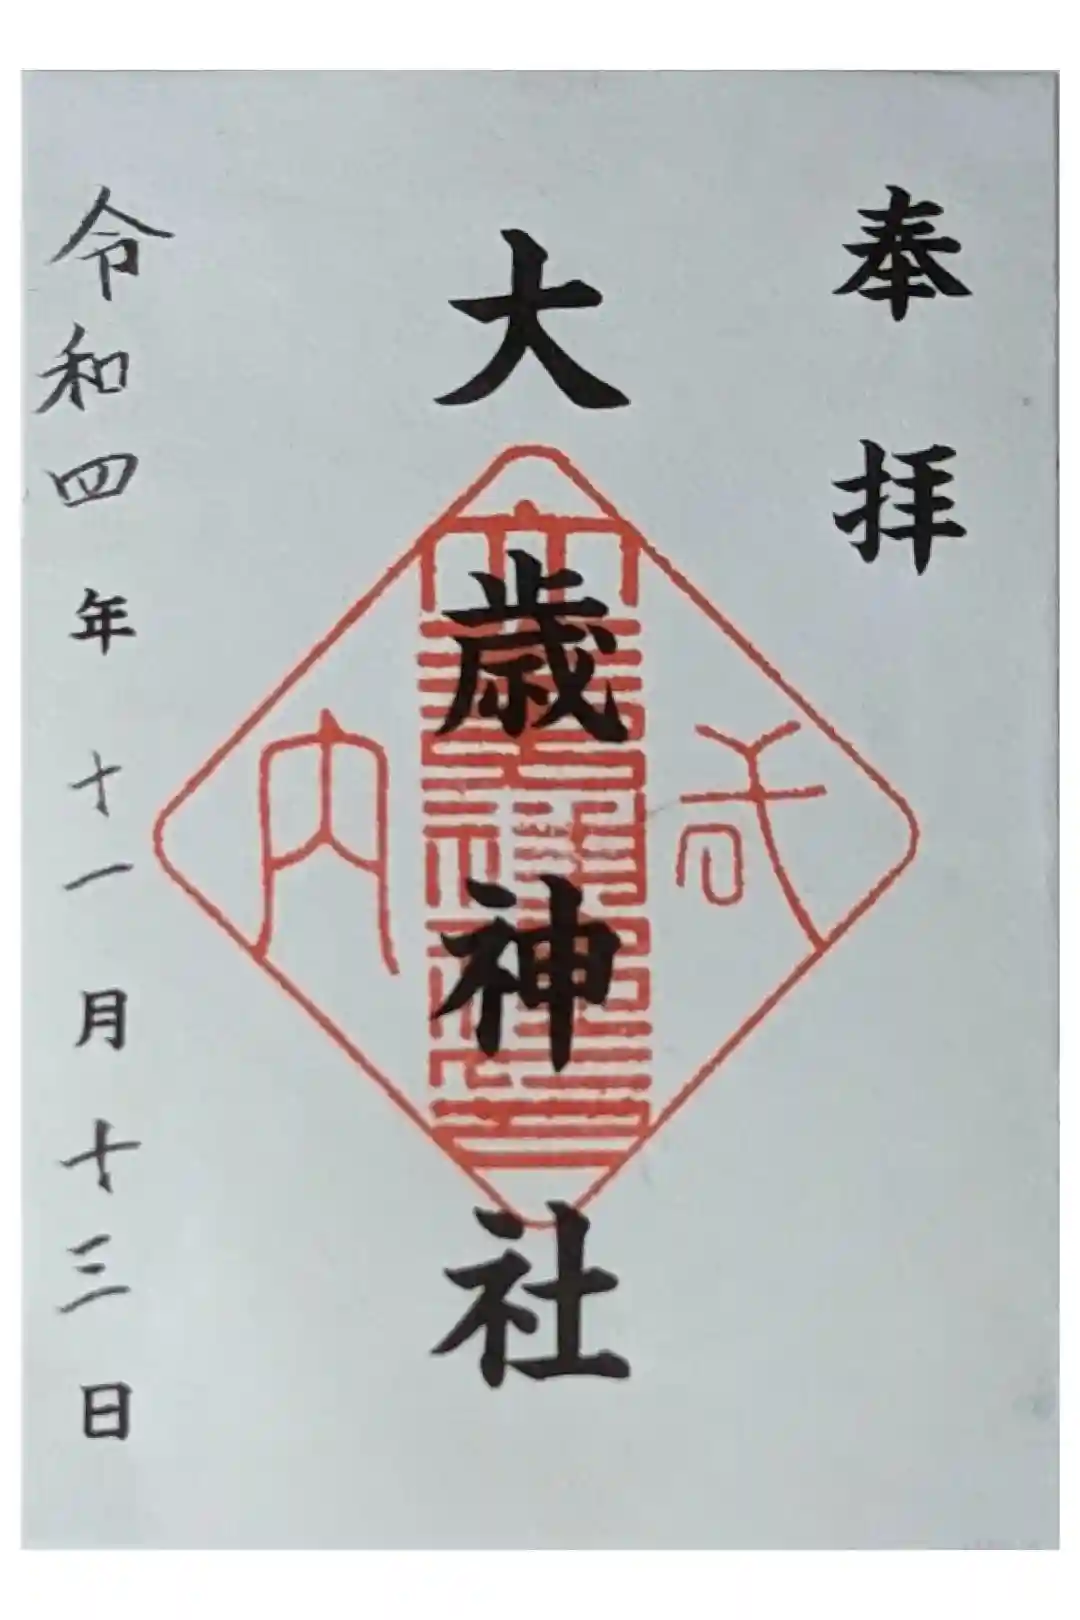 奉拝
大歳神社
令和四年十一月十三日